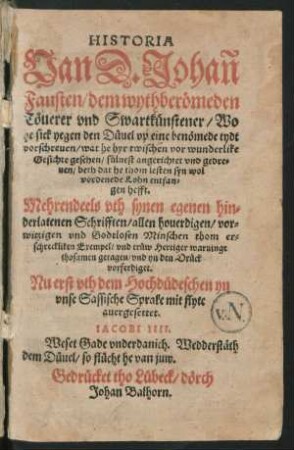 HISTORIA
Van D. Johañ
Fausten / dem wythberömeden
Töuerer vnd Swartkünstener / Wo
he sick yegen den Düuel vp eine benömede tydt
vorschreuen / wat he hyr twischen vor wunderlike
Gesichte gesehen / süluest angerichtet vnd gedre-
uen / beth dat he thom lesten syn wol
vordenede Lohn entfan-
gen hefft.
Mehrendeels vth synen egenen hin-
derlatenen Schrifften / allen houerdigen / vor-
witzigen vnd Godtlosen Minschen thom er-
schrecklikem Exempel / vnd trüw Hertiger warninge
thosamen getagen / vnd yn den Drück
vorferdiget.
Nu erst vth dem Hochdüdeschen yn
vnse Sassische Sprake mit flyte
auergesettet.
IACOBI IIII.
Weset Gade vnderdanich. Wedderstäth
dem Düuel / so flücht he van juw.
Gedrücket tho Lübeck / dörch
Johan Balhorn.
v.N.